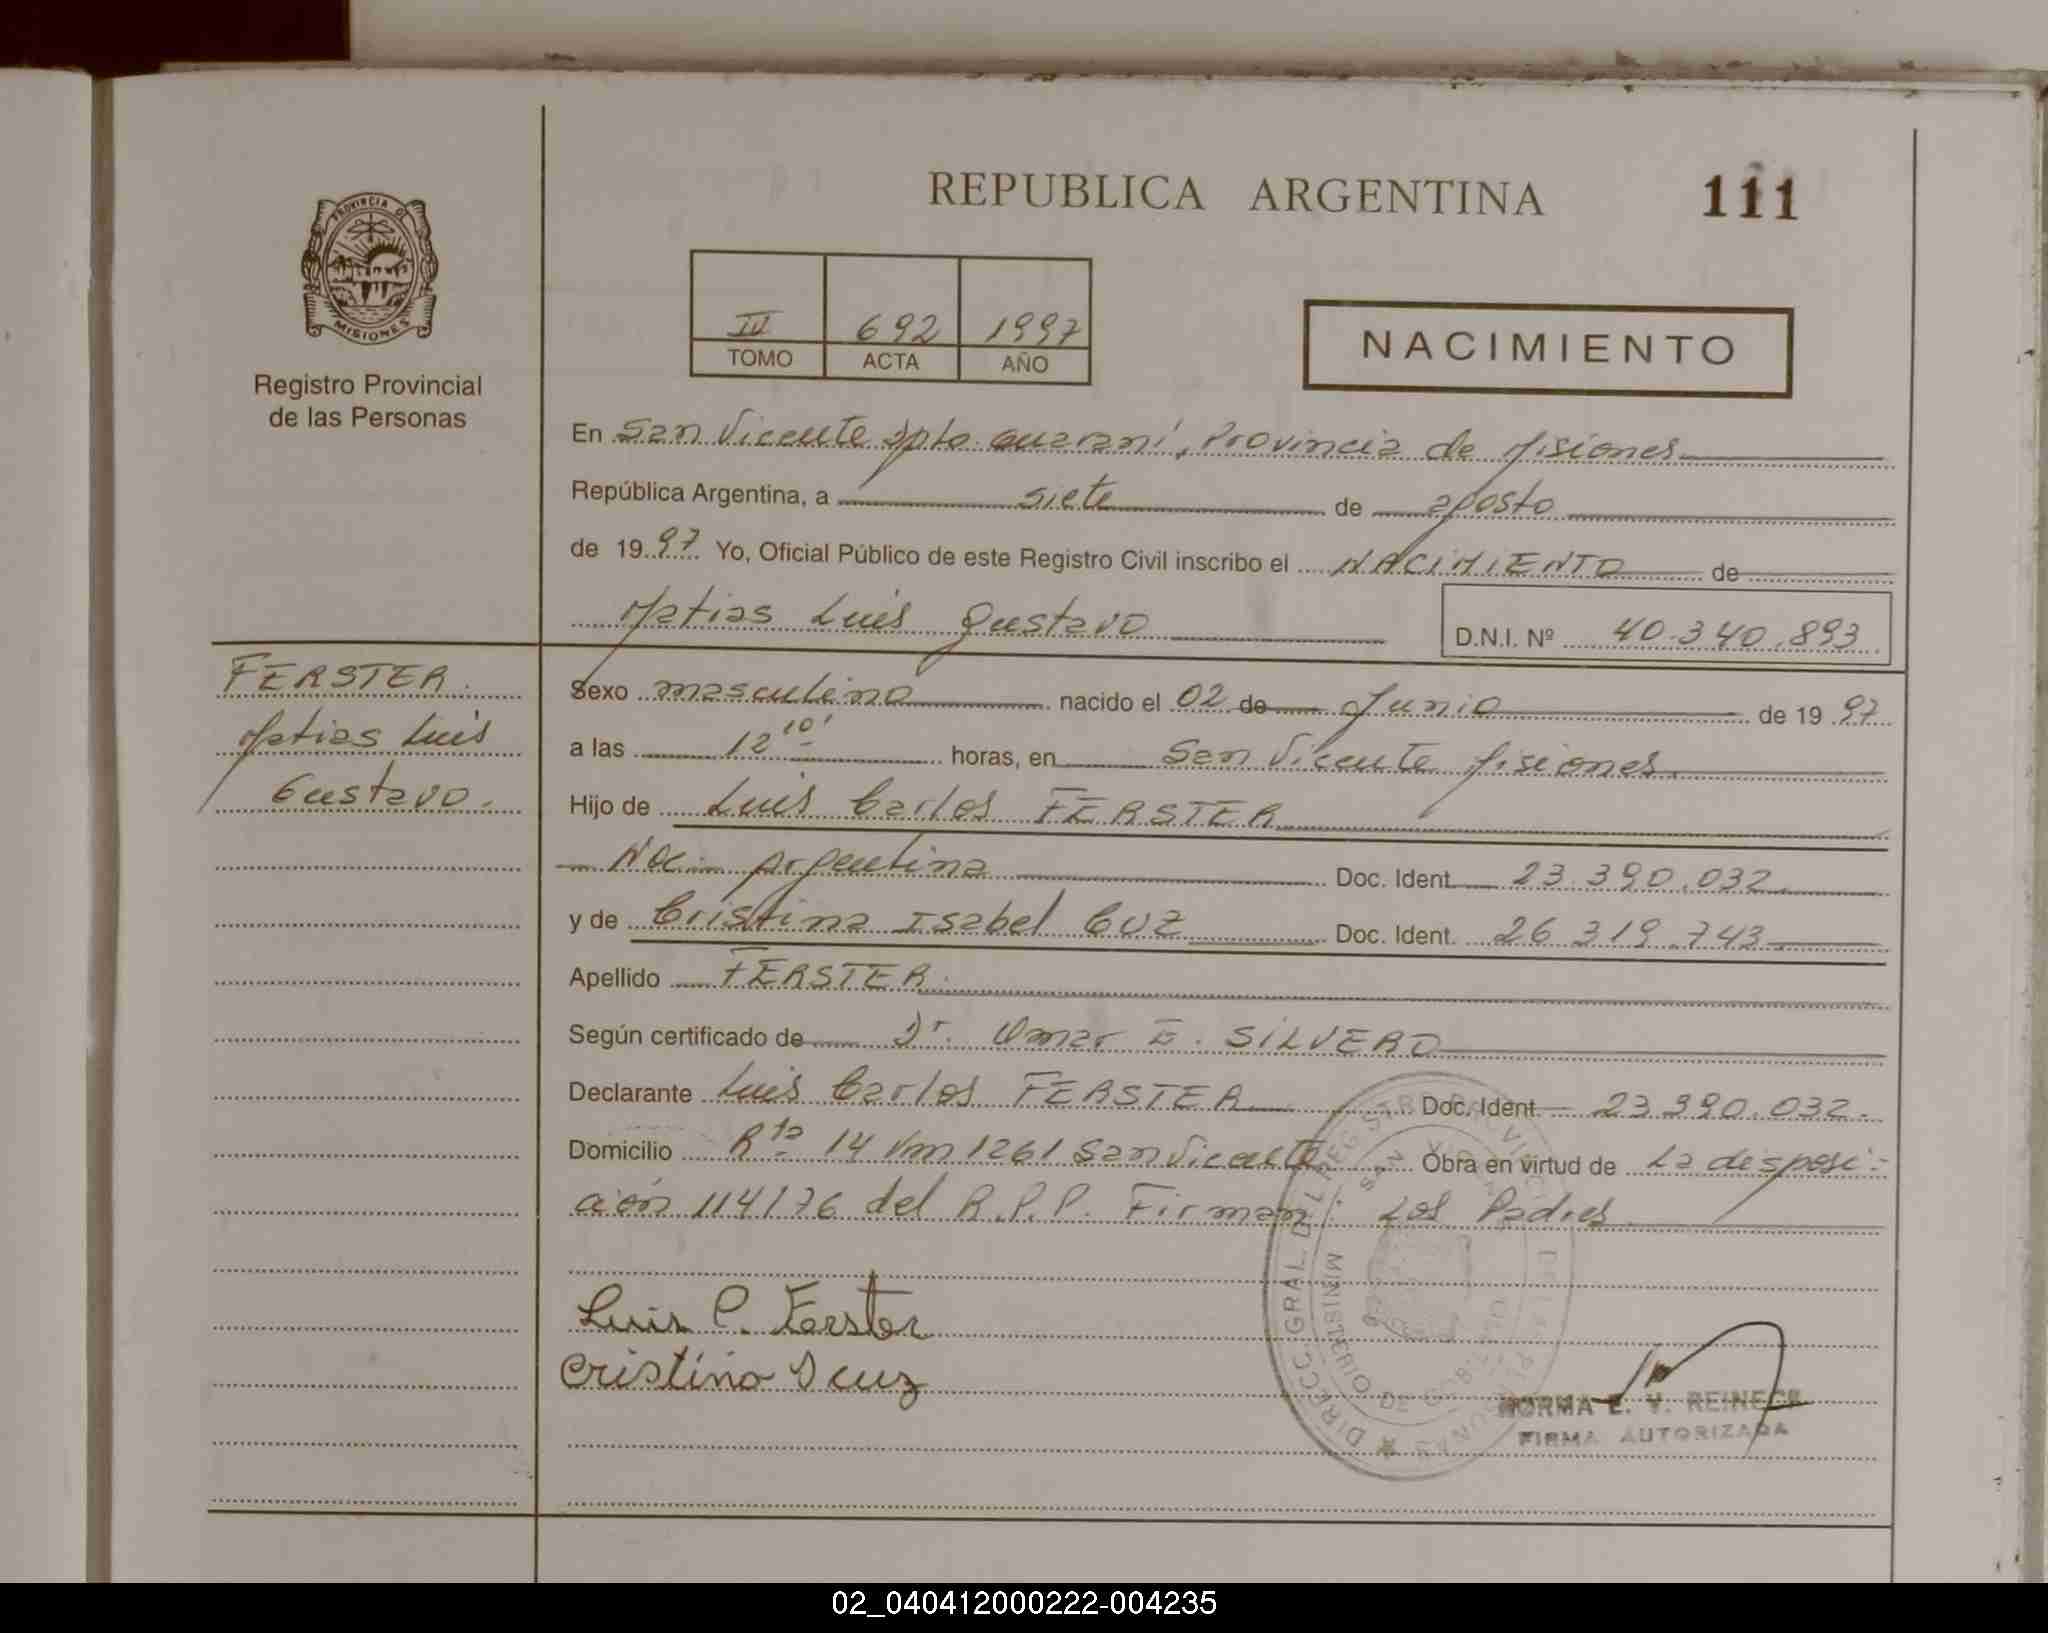 REPUBLICA ARGENTINA
111
PROVINCIA DE
MISIONES
Registro Provincial
de las Personas
IV 692 1997
TOMO ACTA AÑO
NACIMIENTO
En San Vicente Dpto. Guaraní, Provincia de Misiones
República Argentina, a siete de agosto
de 1997 Yo, Oficial Público de este Registro Civil inscribo el NACIMIENTO de
Matias Luis Gustavo
D.N.I. Nº 40.340.893
FERSTER
Matias Luis
Gustavo.
Sexo masculino nacido el 02 de Junio de 1997
a las 12 10' horas, en San Vicente Misiones
Hijo de Luis Carlos FERSTER
Nac. Argentina Doc. Ident. 23.390.032
y de Cristina Isabel CUZ Doc. Ident. 26.319.743
Apellido FERSTER
Según certificado de Dr. Omar E. SILVERO
Declarante Luis Carlos FERSTER Doc. Ident. 23.390.032.
Domicilio Rta 14 Km 1261 San Vicente Obra en virtud de La disposi-
ción 114/76 del R.P.P. Firman: Los Padres
Luis C. Ferster
Cristina I cuz
DIRECC. GRAL DEL REGISTRO PROVINCIAL DE LAS PERSONAS
SAN VICENTE
MINISTERIO DE GOBIERNO
NORMA E. V. REINECK
FIRMA AUTORIZADA
02_040412000222-004235